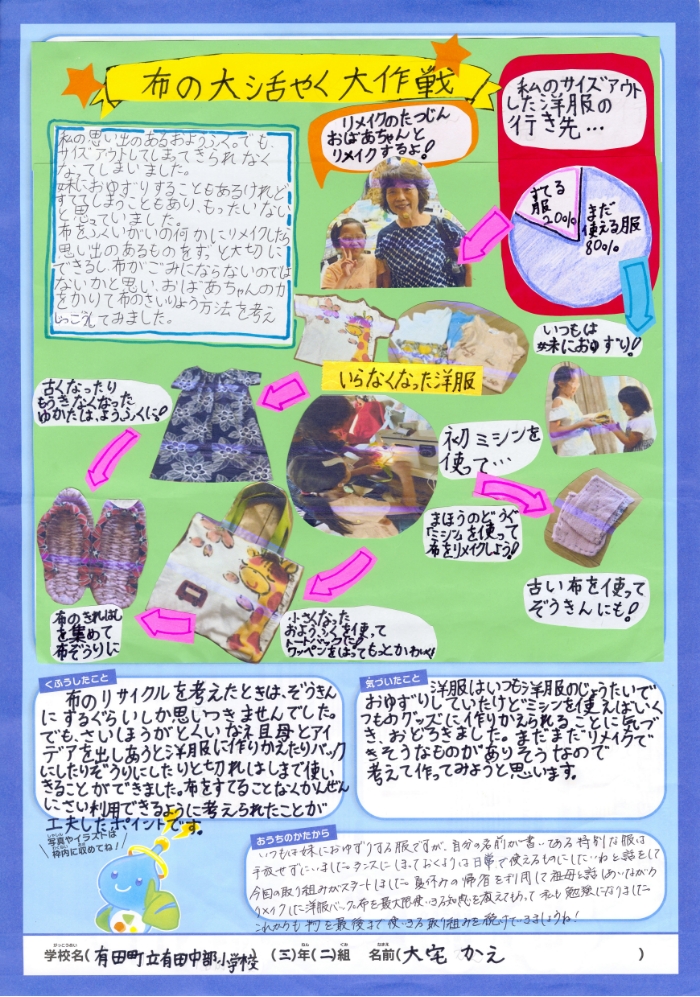 布の大活やく大作戦
私の思い出のあるおようふく。でも、
サイズアウトしてしまってきられなく
なってしまいました。
妹におゆずりすることもあるけれど
すててしまうこともあり、もったいない
と思っていました。
布をふくいがいの何かにリメイクしたら
思い出のあるものをずっと大切に
できるし、布がごみにならないのでは
ないかと思い、おばあちゃんの力
をかりて布のさいりよう方法を考え
てみました。
リメイクのたつじん
おばあちゃんと
リメイクするよ!
私のサイズアウト
した洋服の
行き先…
すてる
服
20%
まだ
使える服
80%
いつもは
妹におゆずり!
いらなくなった洋服
古くなったり
もうきなくなった
ゆかたは、ようふくに!
初ミシンを
使って…
まほうのどうぐ
「ミシン」を使って
布をリメイクしよう!
古い布を使って
ぞうきんにも!
布のきれはし
を集めて
布ぞうりに
小さくなった
おようふくを使って
トートバックに!
ワッペンをはってもっとかわいく
くふうしたこと
布のリサイクルを考えたときは、ぞうきん
にするぐらいしか思いつきませんでした。
でも、さいほうがとくいなそ母とアイ
デアを出しあうと洋服に作りかえたりバック
にしたりぞうりにしたりと切れはしまで使い
きることができました。布をすてることなくかんぜん
にさい利用できるように考えられたことが
工夫したポイントです。
気づいたこと
洋服はいつも洋服のじょうたいで
おゆずりしていたけどミシンを使えばいく
つものグッズに作りかえられることに気づ
き、おどろきました。まだまだリメイクで
きそうなものがありそうなので
考えて作ってみようと思います。
写真やイラストは
枠内に収めてね!
おうちのかたから
いつもは妹におゆずりする服ですが、自分の名前が書いてある特別な服は
手放せずにいました。タンスにしまっておくよりは日常で使えるものにしたいねと話をして
今回の取り組みがスタートしました。夏休みの帰省を利用して祖母と話し合いながら
リメイクした洋服バック。布を最大限使いきる知恵を教えてもらって私も勉強になりました。
これからも物を最後まで使いきる取り組みを続けていきましょうね!
学校名(有田町立有田中部小学校) (三)年(二)組 名前(大宅 かえ)